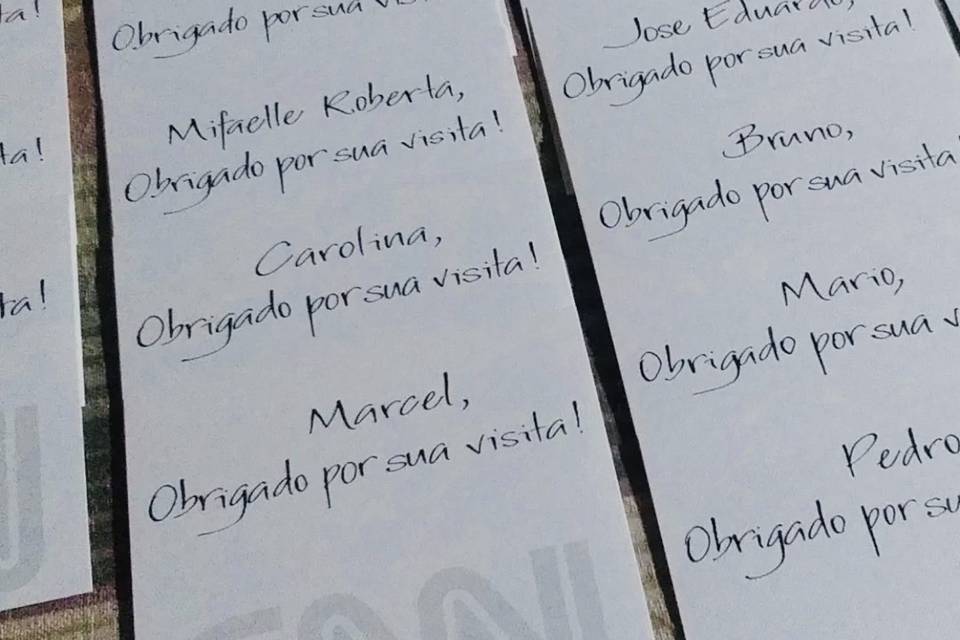 ta!
ta!
ta!
Obrigado por sua
Mifaelle Roberta,
Obrigado por sua visita!
Carolina,
Obrigado por sua visita!
Marcel,
Obrigado por sua visita!
Jose Eduardo,
Obrigado por sua visita!
Bruno,
Obrigado por sua visita
Mario,
Obrigado por sua v
Pedro
Obrigado por su